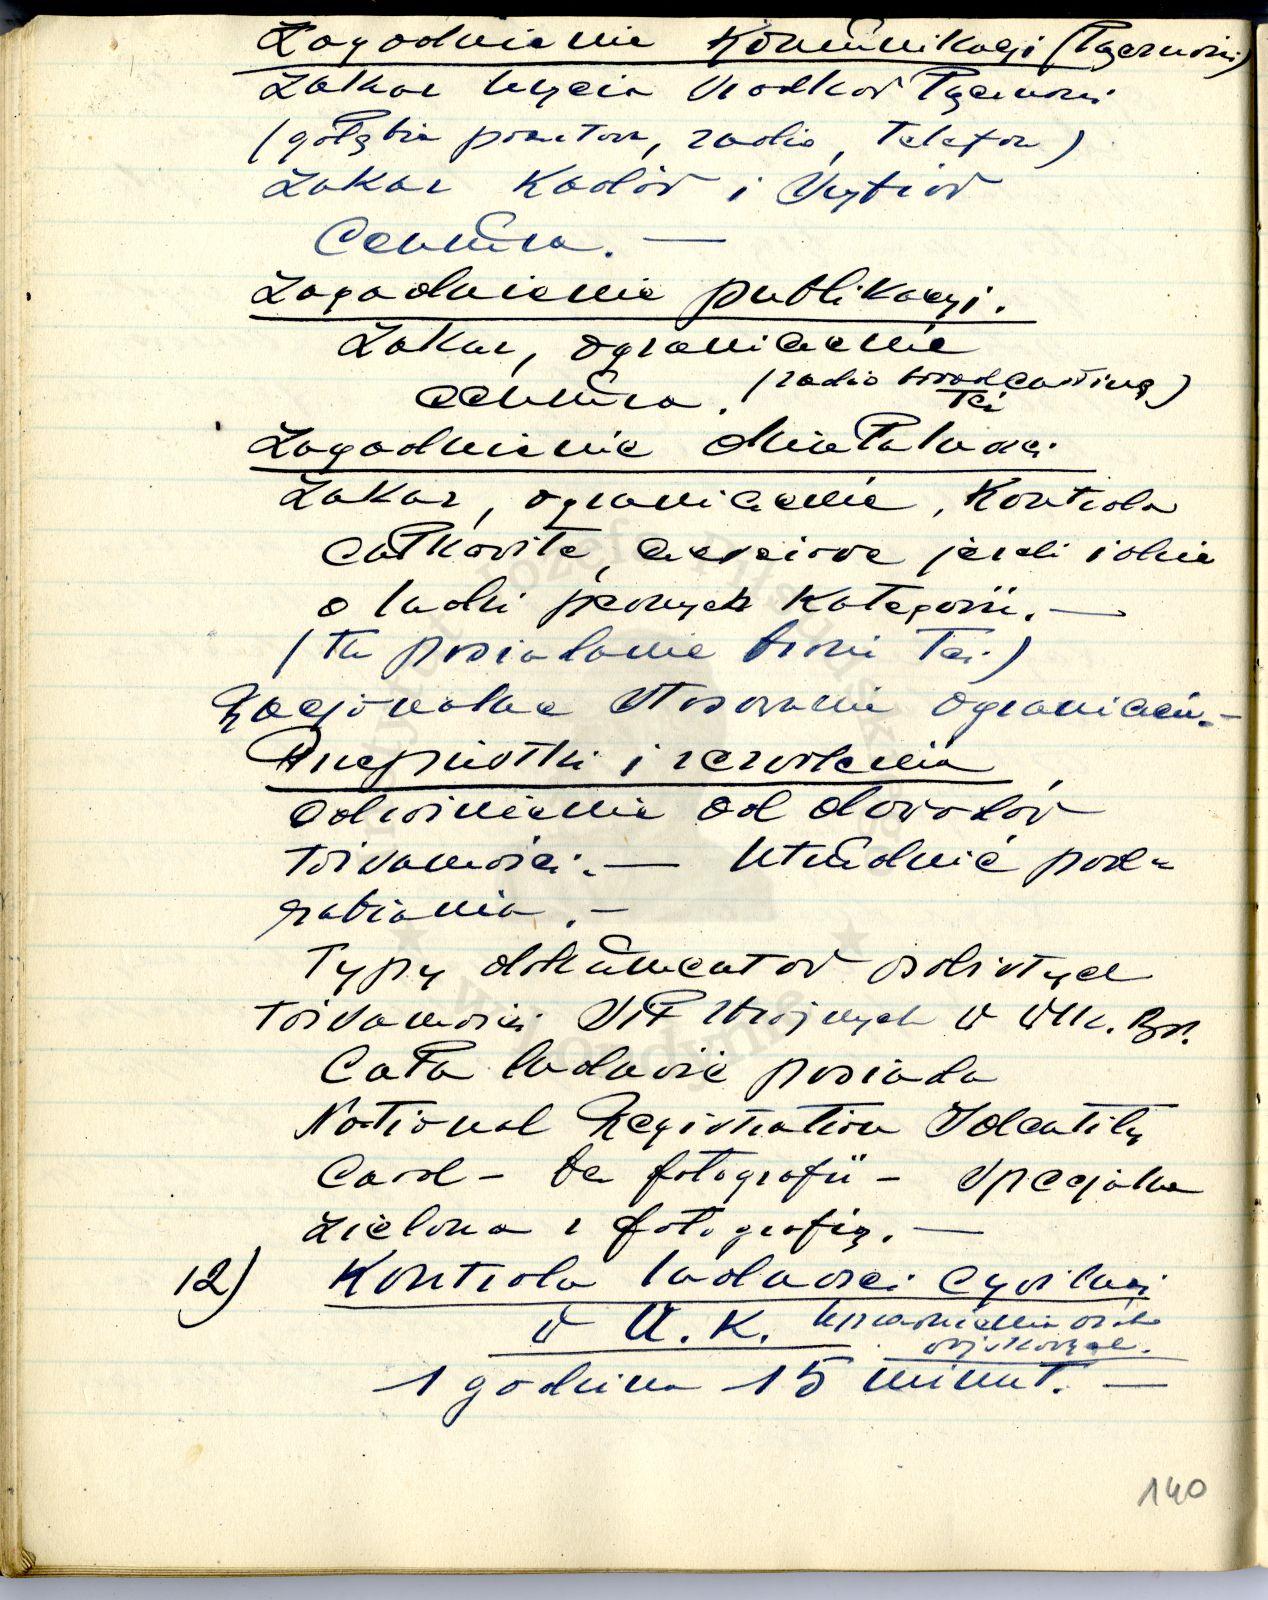 Zagadnienie Komunikacji (Łączności)
Zakaz użycia środków Łączności
(gołębie pocztow, radio, telefon)
Zakaz Kodów i Szyfrów
Cenzura. —
Zagadnienie publikacyi.
Zakaz, ograniczenie
cenzura. (radio broadcasting)
też
Zagadnienie działalności
Zakaz, ograniczenie, Kontrola
całkowite, częściowe jeżeli idzie
o ludzi pewnych Kategorii. —
(tu posiadanie broni też)
Racjonalne stosowanie ograniczeń. —
Przepustki i zezwolenia
Odróżnienie od dowodów
tożsamości. — Utrudnić pod-
rabiania. —
Typy dokumentów osobistych
tożsamości Sił Zbrojnych w Wlk. Bryt.
Cała ludność posiada
National Registration Identity
Card - bez fotografii - specjalne
zielona z fotografią. —
12) Kontrola ludności cywilnej
w U.K. Uprawnienia osób
wojskowych.
1 godzina 15 minut. —
140
Józefa Piłsudskiego
w Londynie